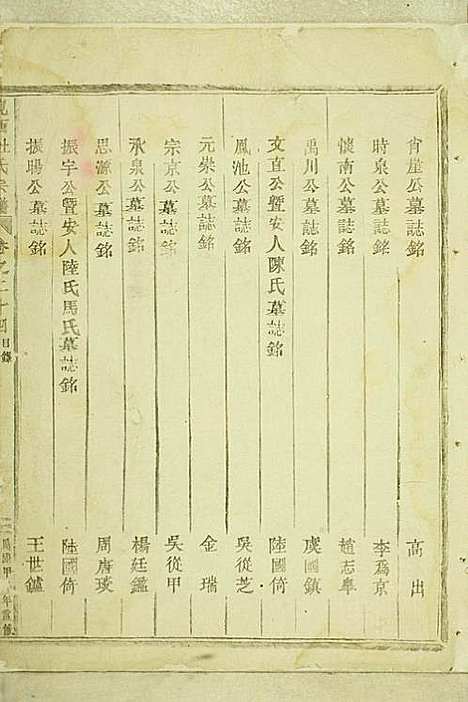 肯崖公墓誌銘 高出
時泉公墓誌銘 李爲京
懷南公墓誌銘 趙志皐
禹川公墓誌銘 虞國鎮
文直公暨安人陳氏墓誌銘 陸國倚
鳳池公墓誌銘 吳從芝
元崇公墓誌銘 金瑞
宗京公墓誌銘 吳從甲
永泉公墓誌銘 楊廷鑑
思源公墓誌銘 周唐琰
振宇公暨安人陸氏馬氏墓誌銘 陸國倚
振暘公墓誌銘 王世鑪
杜氏宗譜 卷之二十四 目錄